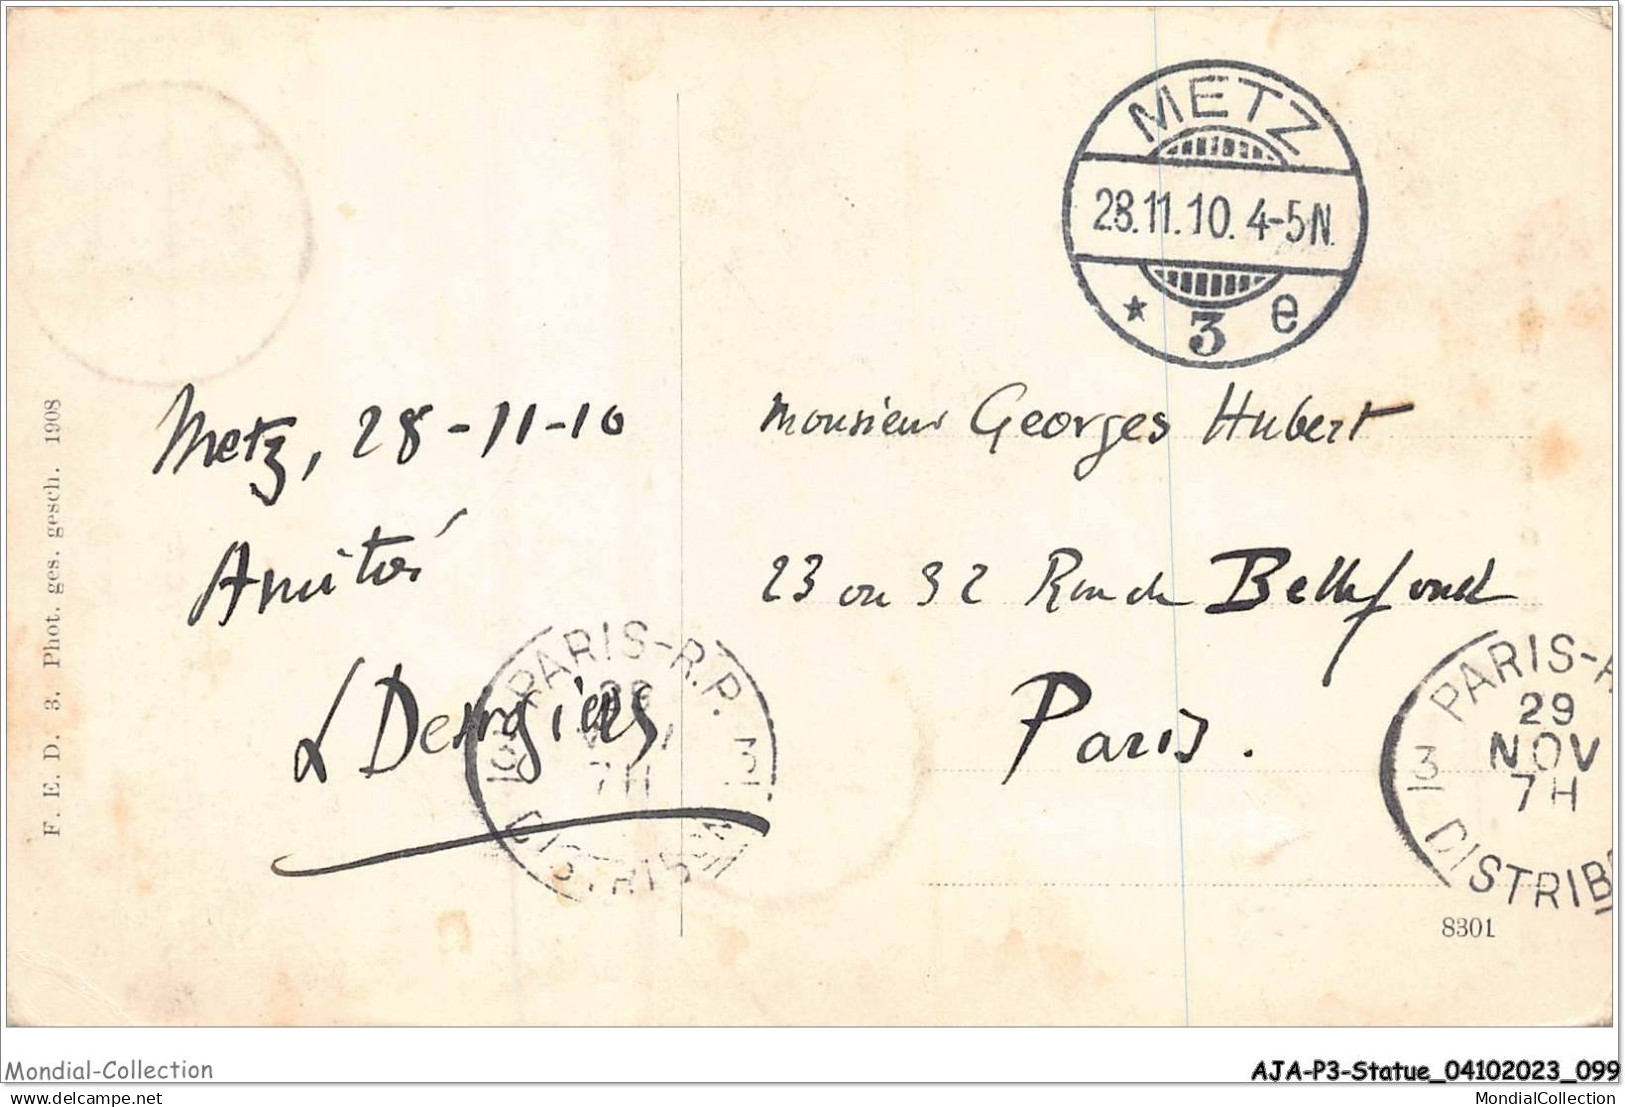 METZ
28.11.10. 4-5N.
* 3 e
Metz, 28-11-10
Amitiés
monsieur Georges Hubert
23 ou 32 Rue de Bellefond
Paris.
PARIS-R.P.
7H
DISTRIBUTION
PARIS-R
29
NOV
7H
DISTRIB
F. E. D. 3. Phot. ges. gesch. 1908
8301
Mondial-Collection
AJA-P3-Statue_04102023_099
MondialCollection